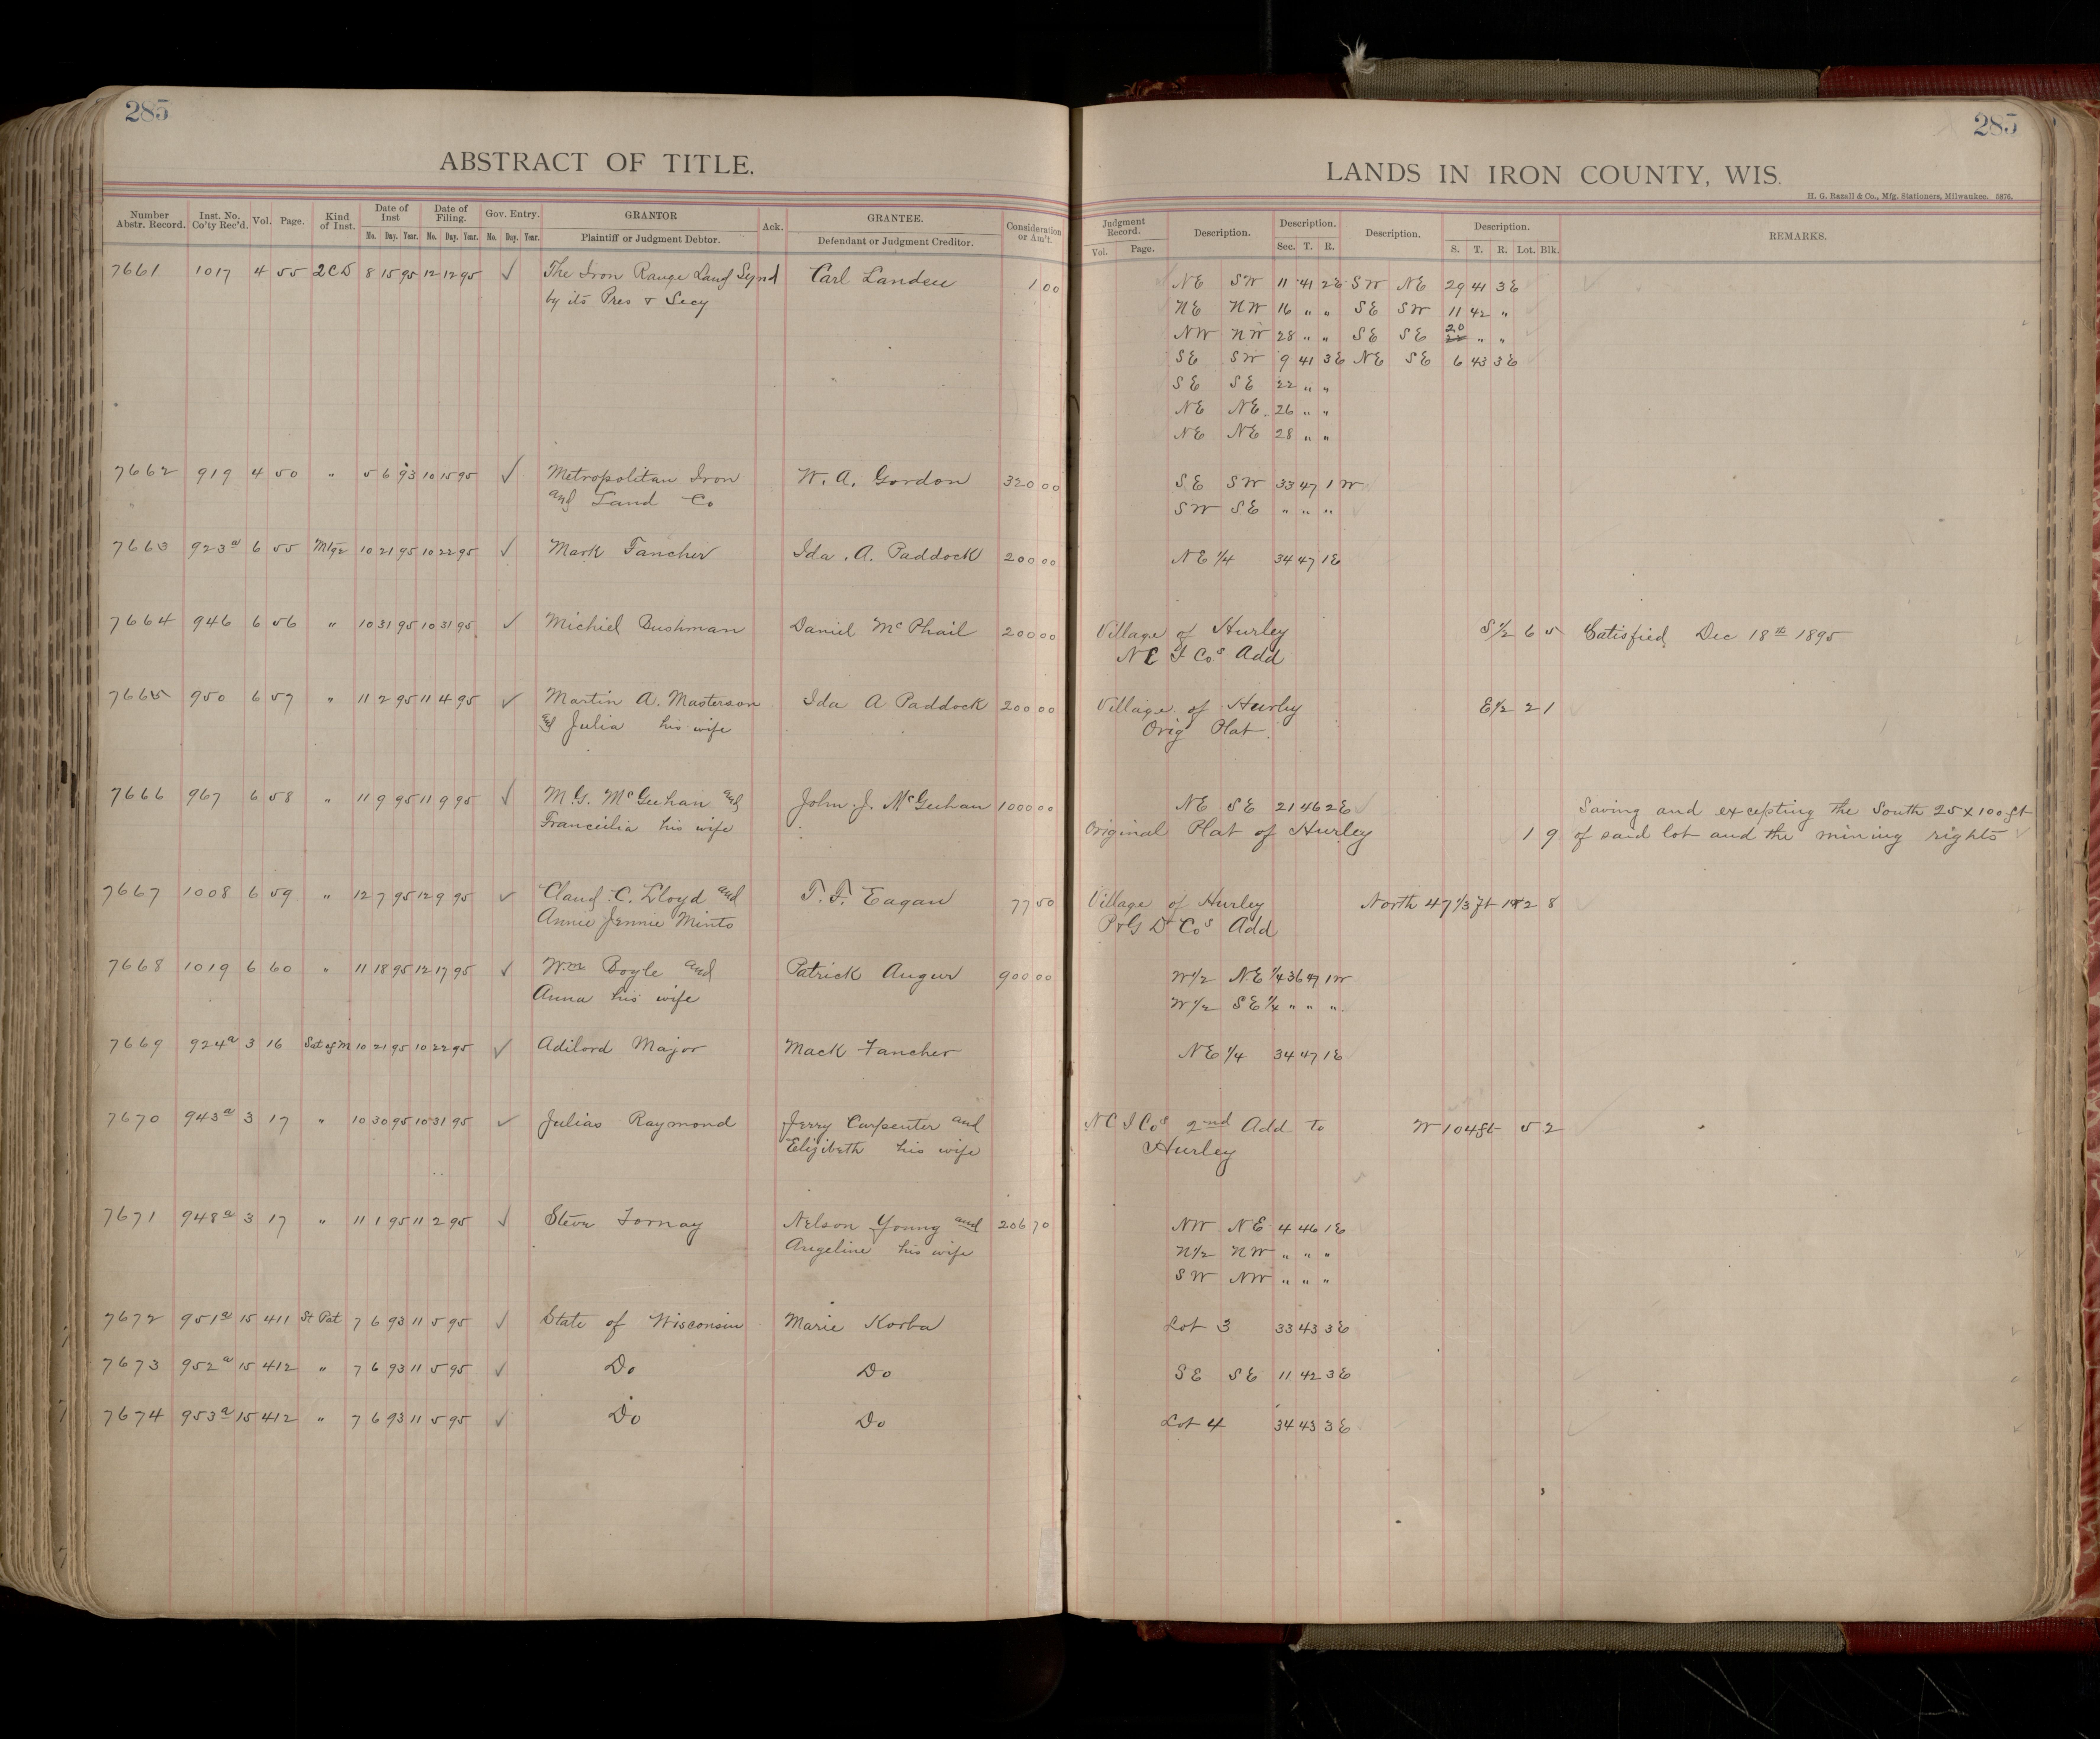 285
285
ABSTRACT OF TITLE.
LANDS IN IRON COUNTY, WIS.
H. G. Razall & Co., Mfg. Stationers, Milwaukee. 5876.
Number Abstr. Record. Inst. No. Co'ty Rec'd. Vol. Page. Kind of Inst. Date of Inst Date of Filing. Gov. Entry. GRANTOR Ack. GRANTEE. Consideration or Am't. Judgment Record. Description. Description. Description. Description. REMARKS.
Mo. Day. Year. Mo. Day. Year. Mo. Day. Year. Plaintiff or Judgment Debtor. Defendant or Judgment Creditor. Vol. Page. Sec. T. R. S. T. R. Lot. Blk.
7661 1017 4 55 2CD 8 15 95 12 12 95 ✓ The Iron Range Land Synd Carl Landeu 1 00 NE SW 11 41 2E SW NE 29 41 3E
by its Pres & Secy NE NW 16 " " SE SW 11 42 "
NW NW 28 " " SE SE 20 " "
SE SW 9 41 3E NE SE 6 43 3E
SE SE 22 " "
NE NE 26 " "
NE NE 28 " "
7662 919 4 50 " 5 6 93 10 15 95 ✓ Metropolitan Iron W. A. Gordon 320 00 SE SW 33 47 1W
and Land Co SW SE " " "
7663 923a 6 55 Mtge 10 21 95 10 22 95 ✓ Mark Fancher Ida . A. Paddock 200 00 NE 1/4 34 47 1E
7664 946 6 56 " 10 31 95 10 31 95 ✓ Michiel Bushman Daniel McPhail 200 00 Village of Hurley S1/2 6 5 Satisfied Dec 18th 1895
N C I Cos Add
7665 950 6 57 " 11 2 95 11 4 95 ✓ Martin A. Masterson Ida A Paddock 200 00 Village of Hurley E1/2 2 1
and Julia his wife Orig Plat
7666 967 6 58 " 11 9 95 11 9 95 ✓ M. G. McGeehan and John. J. McGeehan 1000 00 NE SE 21 46 2E Saving and excepting the South 25 x 100 ft
Francicilia his wife Original Plat of Hurley 1 9 of said lot and the mining rights
7667 1008 6 59 " 12 7 95 12 9 95 ✓ Claud. C. Lloyd and T. F. Eagan 77 50 Village of Hurley North 47 1/3 ft 1&2 8
Annie Jennie Minto P&G D Cos Add
7668 1019 6 60 " 11 18 95 12 17 95 ✓ Wm Boyle and Patrick Augur 900 00 W1/2 NE 1/4 36 47 1W
Anna his wife W1/2 SE 1/4 " " "
7669 924a 3 16 Sat of M 10 21 95 10 22 95 ✓ Adilord Major Mack Fancher NE 1/4 34 47 1E
7670 943a 3 17 " 10 30 95 10 31 95 ✓ Julias Raymond Jerry Carpenter and N C I Cos 2nd Add to W 104 ft 5 2
Elizibeth his wife Hurley
7671 948a 3 17 " 11 1 95 11 2 95 ✓ Steve Fornay Nelson Young and 206 70 NW NE 4 46 1E
Angeline his wife N1/2 NW " " "
SW NW " " "
7672 951a 15 411 St Pat 7 6 93 11 5 95 ✓ State of Wisconsin Marie Korba Lot 3 33 43 3E
7673 952a 15 412 " 7 6 93 11 5 95 ✓ Do Do SE SE 11 42 3E
7674 953a 15 412 " 7 6 93 11 5 95 ✓ Do Do Lot 4 34 43 3E